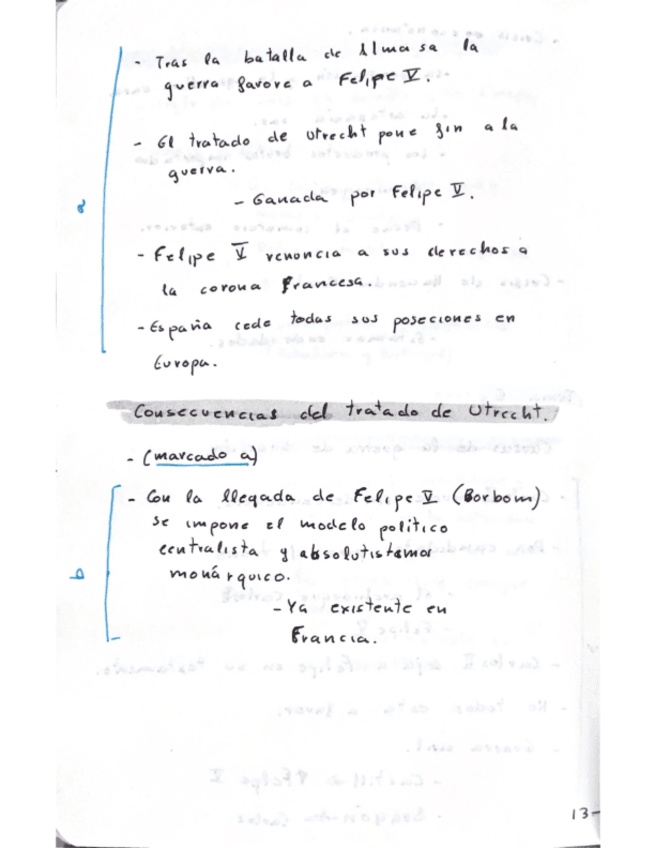 - Tras la batalla de Almasa la
guerra favore a Felipe V.
- El tratado de Utrecht pone fin a la
guerra.
- Ganada por Felipe V.
a
- Felipe V renoncia a sus derechos a
la corona francesa.
- España cede todas sus poseciones en
Europa.
Consecuencias del tratado de Utrecht.
- (marcado a)
- Con la llegada de Felipe V (Borbom)
se impone el modelo político
centralista y absolutistamo
monárquico.
b
- Ya existente en
Francia.
13-